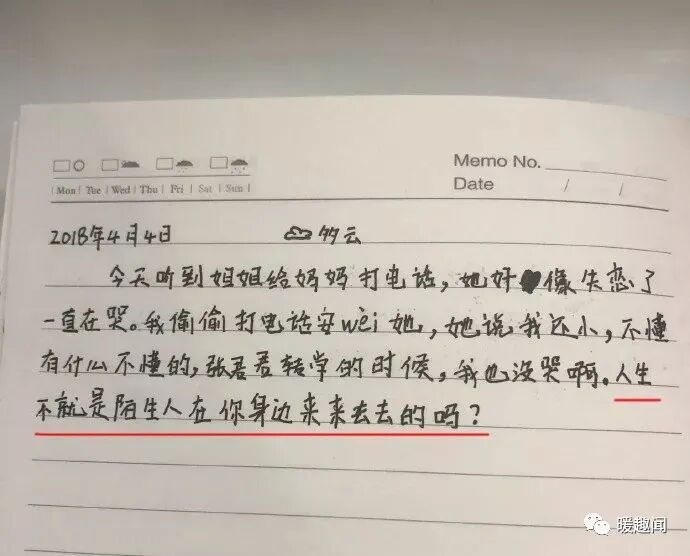 Memo No.
Mon Tue Wed Thu Fri Sat Sun
Date / /
2018年4月4日 多云
今天听到姐姐给妈妈打电话，她好像失恋了
一直在哭。我偷偷打电话安wèi她，她说我还小，不懂
有什么不懂的，张君君转学的时候，我也没哭啊。人生
不就是陌生人在你身边来来去去的吗？
暖趣闻